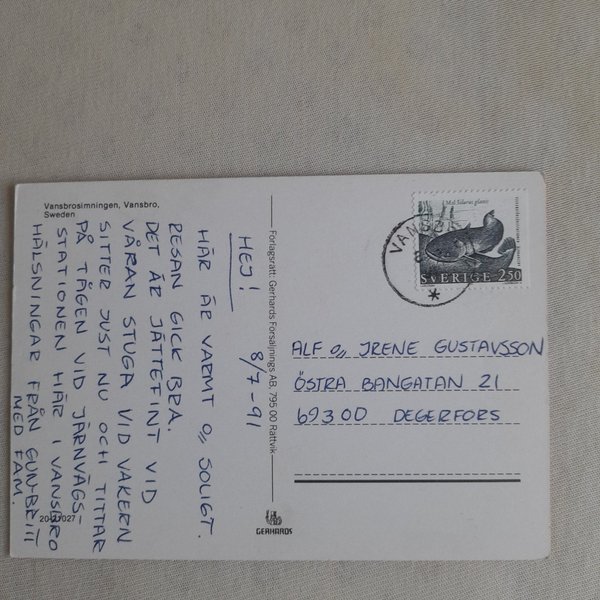 Vansbrosimningen, Vansbro,
Sweden
HEJ! 8/7-91
HÄR ÄR VARMT O,, SOLIGT.
RESAN GICK BRA.
DET ÄR JÄTTEFINT VID
VÅRAN STUGA VID VAKERN
SITTER JUST NU OCH TITTAR
PÅ TÅGEN VID JÄRNVÄGS-
STATIONEN HÄR I VANSBRO
HÄLSNINGAR FRÅN GUN-BRITT
MED FAM.
20-21027
Förlagsrätt: Gerhards Försäljnings AB, 795 00 Rättvik
GERHARDS
Mal Silurus glanis
SVERIGE 250
VANSBRO
8
ALF O,, IRENE GUSTAVSSON
ÖSTRA BANGATAN 21
693 00 DEGERFORS